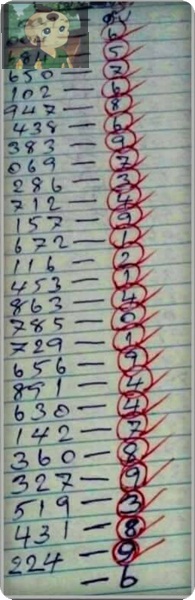 6
5
650 — 7
102 — 6
947 — 8
438 — 6
383 — 9
069 — 7
286 —
712 — 4
157 — 9
672 — 1
116 — 2
453 — 1
863 — 4
785 — 0
729 — 1
656 — 9
891 — 4
630 — 4
142 — 7
360 — 8
327 — 9
519 — 3
431 — 8
224 — 9
— 6